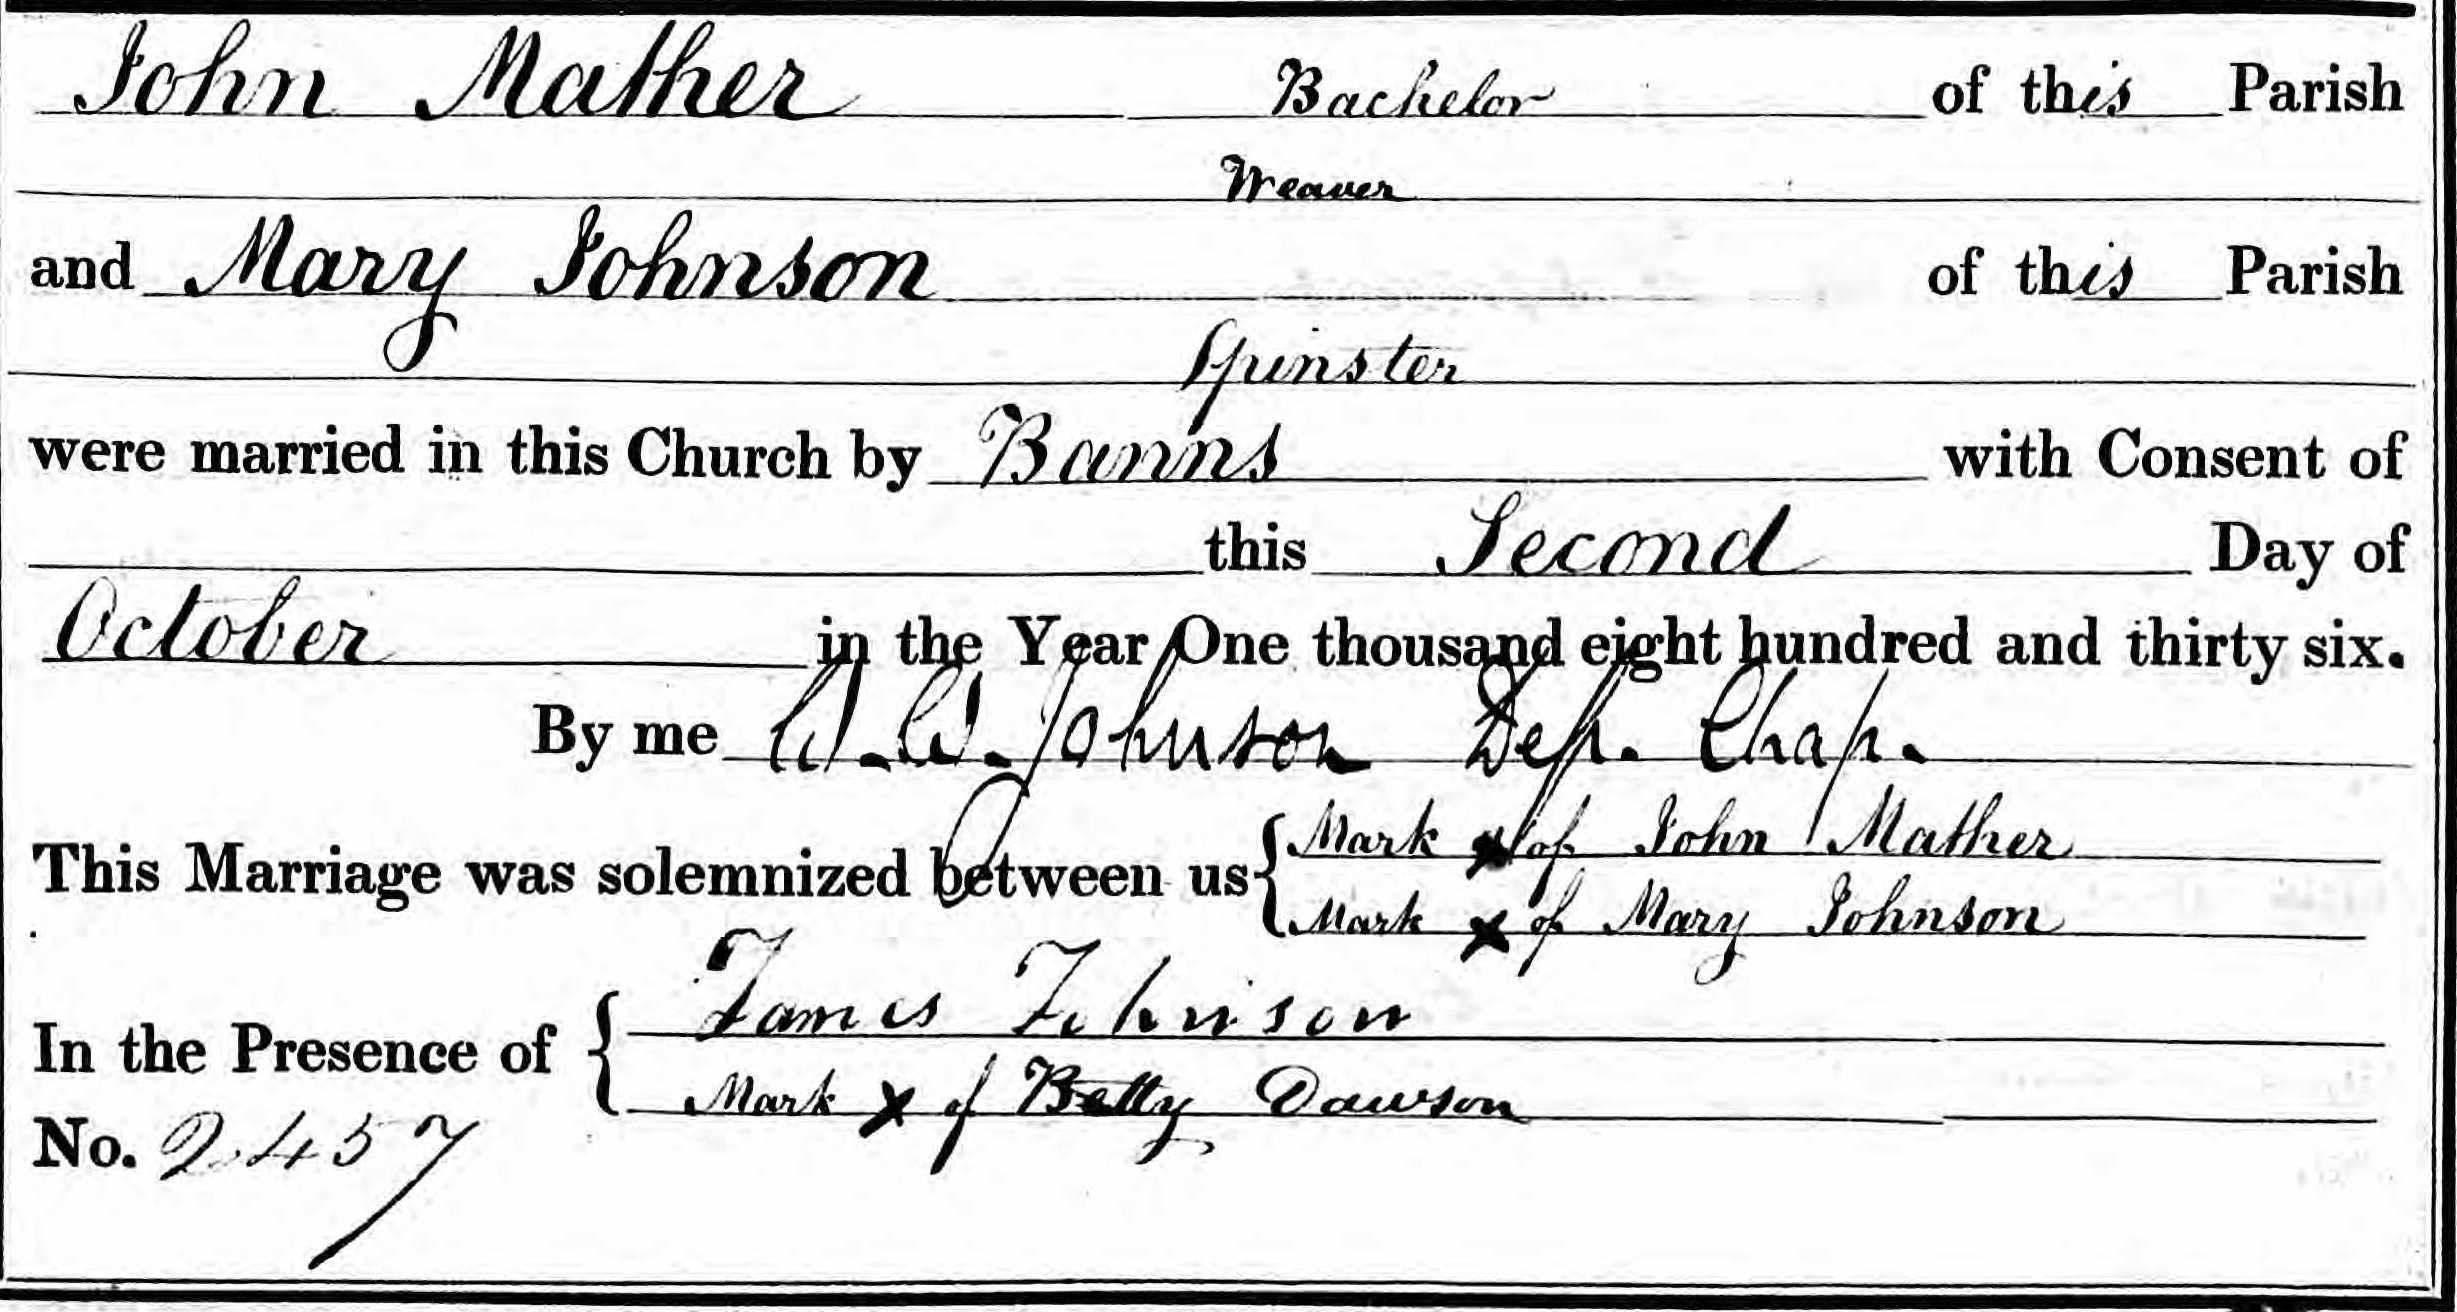 John Mather Bachelor of this Parish
Weaver
and Mary Johnson of this Parish
Spinster
were married in this Church by Banns with Consent of
this Second Day of
October in the Year One thousand eight hundred and thirty six.
By me W. W. Johnson Dep. Chap.
This Marriage was solemnized between us { Mark x of John Mather
Mark x of Mary Johnson
In the Presence of { James Johnson
Mark x of Betty Dawson
No. 2457